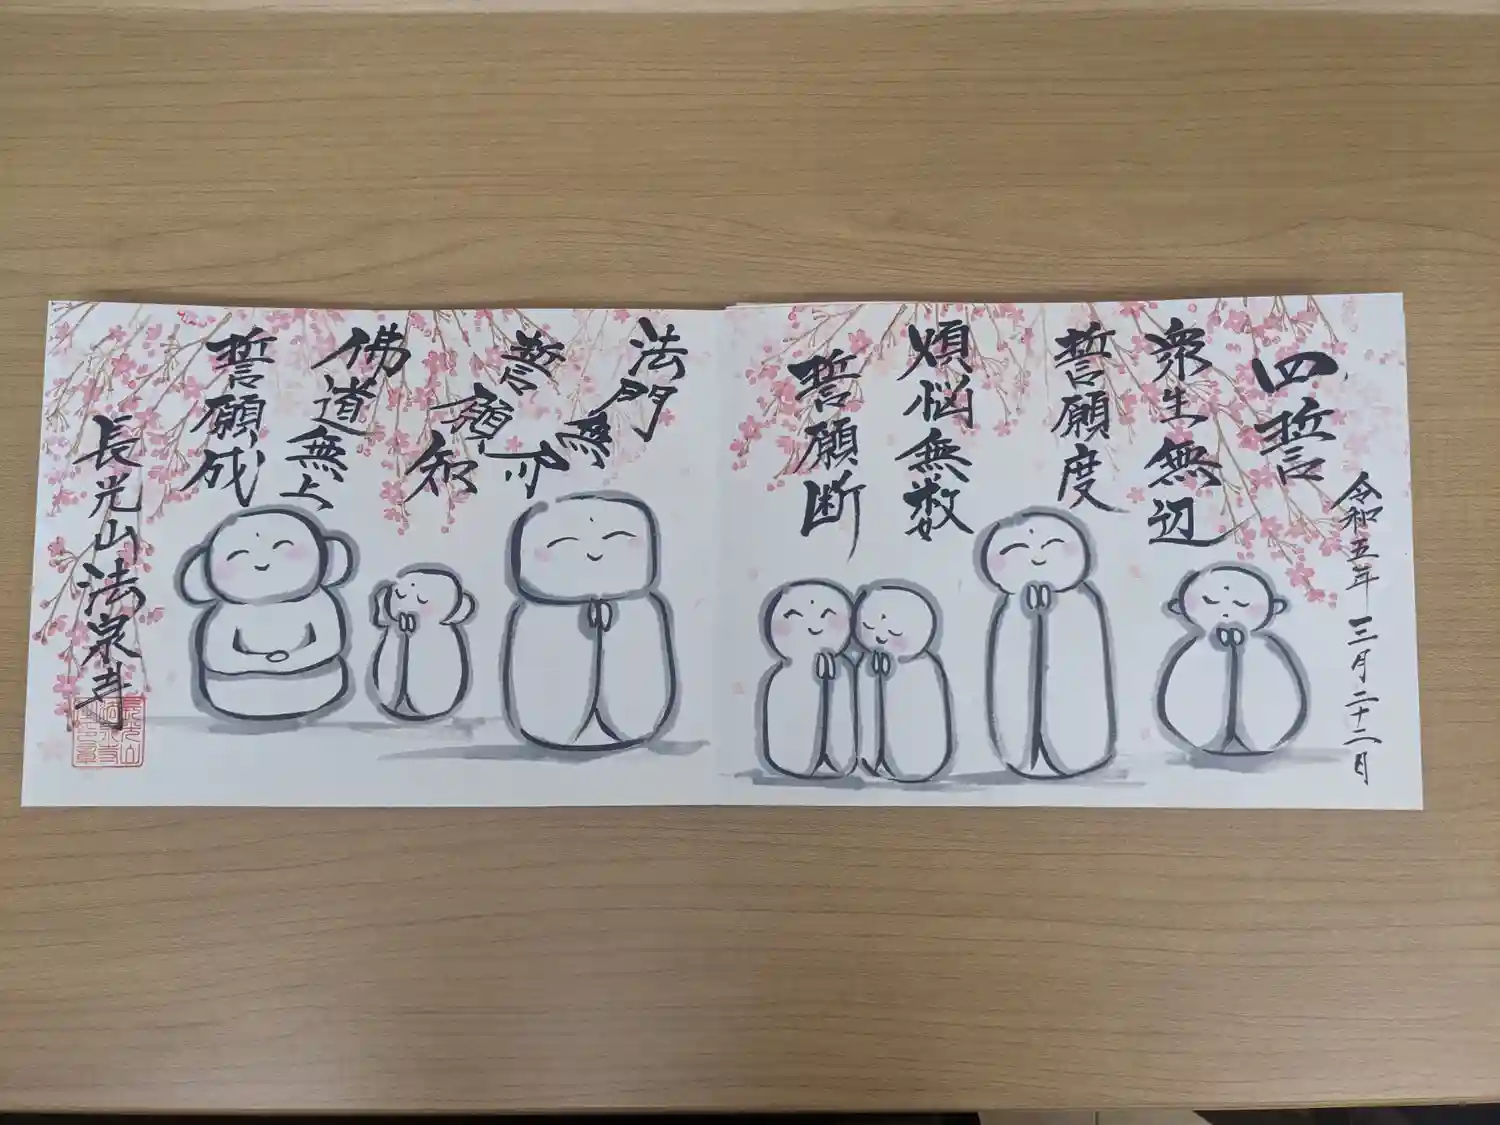 四誓
令和五年 三月二十二日
衆生無辺
誓願度
煩悩無数
誓願断
法門無尽
誓願知
佛道無上
誓願成
長光山法泉寺